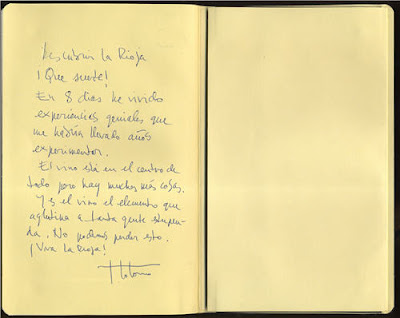 Descubrir La Rioja
¡Que suerte!
En 8 dias he vivido
experiencias geniales que
me habría llevado años
experimentar.
El vino está en el centro de
todo pero hay muchas más cosas.
Y es el vino el elemento que
aglutina a tanta gente estupen-
da. No podemos perder esto.
¡Viva La Rioja!